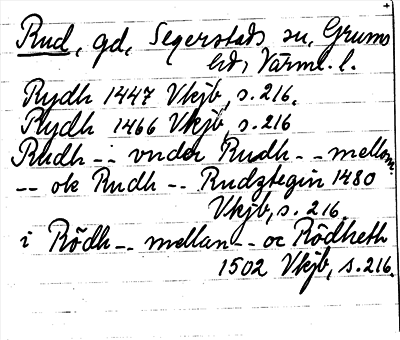 Rud, gd, Segerstads sn, Grums
hd, Värml. l.
Rydh 1447 Vkjb, s. 216.
Rydh 1466 Vkjb, s. 216
Rudh -- vnder Rudh -- mellom
-- ok Rudh -- Rudztegin 1480
Vkjb, s. 216.
i Rödh -- mellan -- oc Rödheth
1502 Vkjb, s. 216.